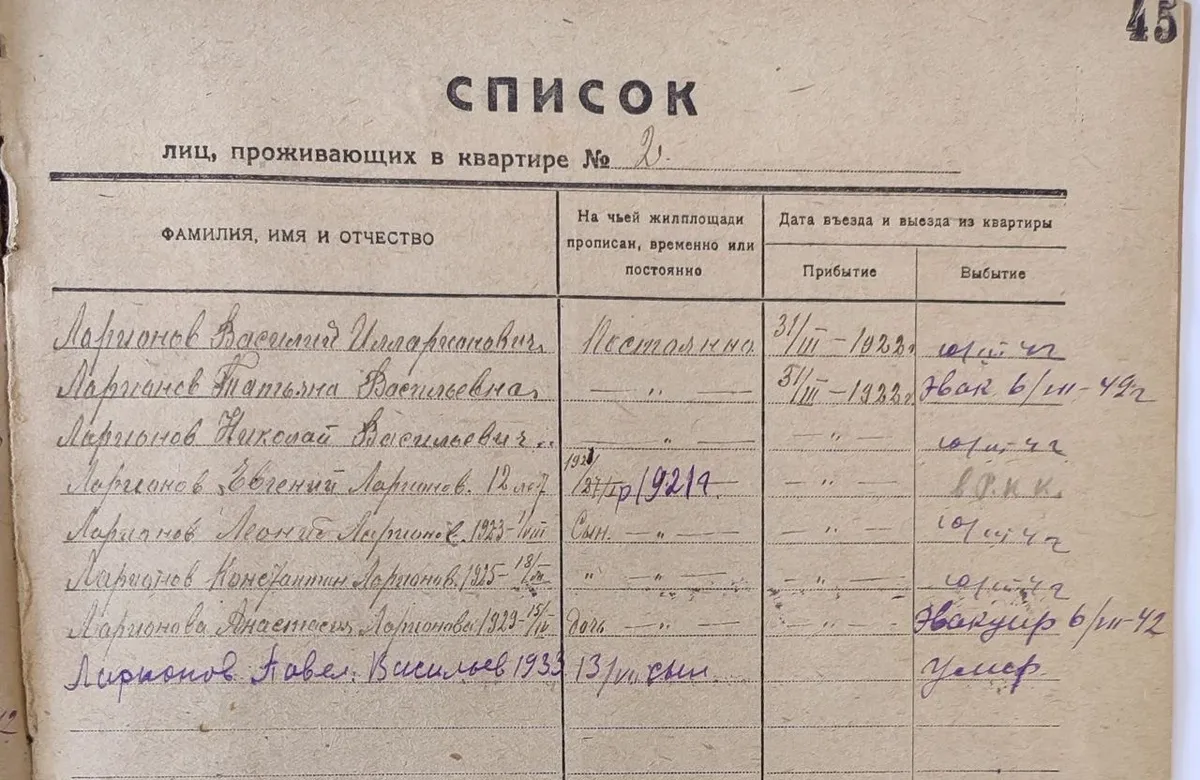 45
СПИСОК
лиц, проживающих в квартире № 2.
ФАМИЛИЯ, ИМЯ И ОТЧЕСТВО
На чьей жилплощади прописан, временно или постоянно
Дата въезда и выезда из квартиры
Прибытие
Выбытие
Ларионов Василий Илларионович. Постоянно 31/III – 1922 г.
Ларианов Татьяна Васильевна — " — 31/III – 1922 г. Эвак. 6/III – 42 г
Ларионов Николай Васильевич.. — " — — " —
Ларионов Евгений Ларионов. 12 лет 1921 р 1921 г. — " —
Ларионов Леонид Ларионов. 1923 – Сын. — " — — " —
Ларионов Константин Ларионов. 1925 – " — " — — " —
Ларионова Анастасия Ларионова 1929 – дочь — " — — " — Эвакуир 6/III – 42
Ларионов Павел. Васильев 1933 13/VII сын.